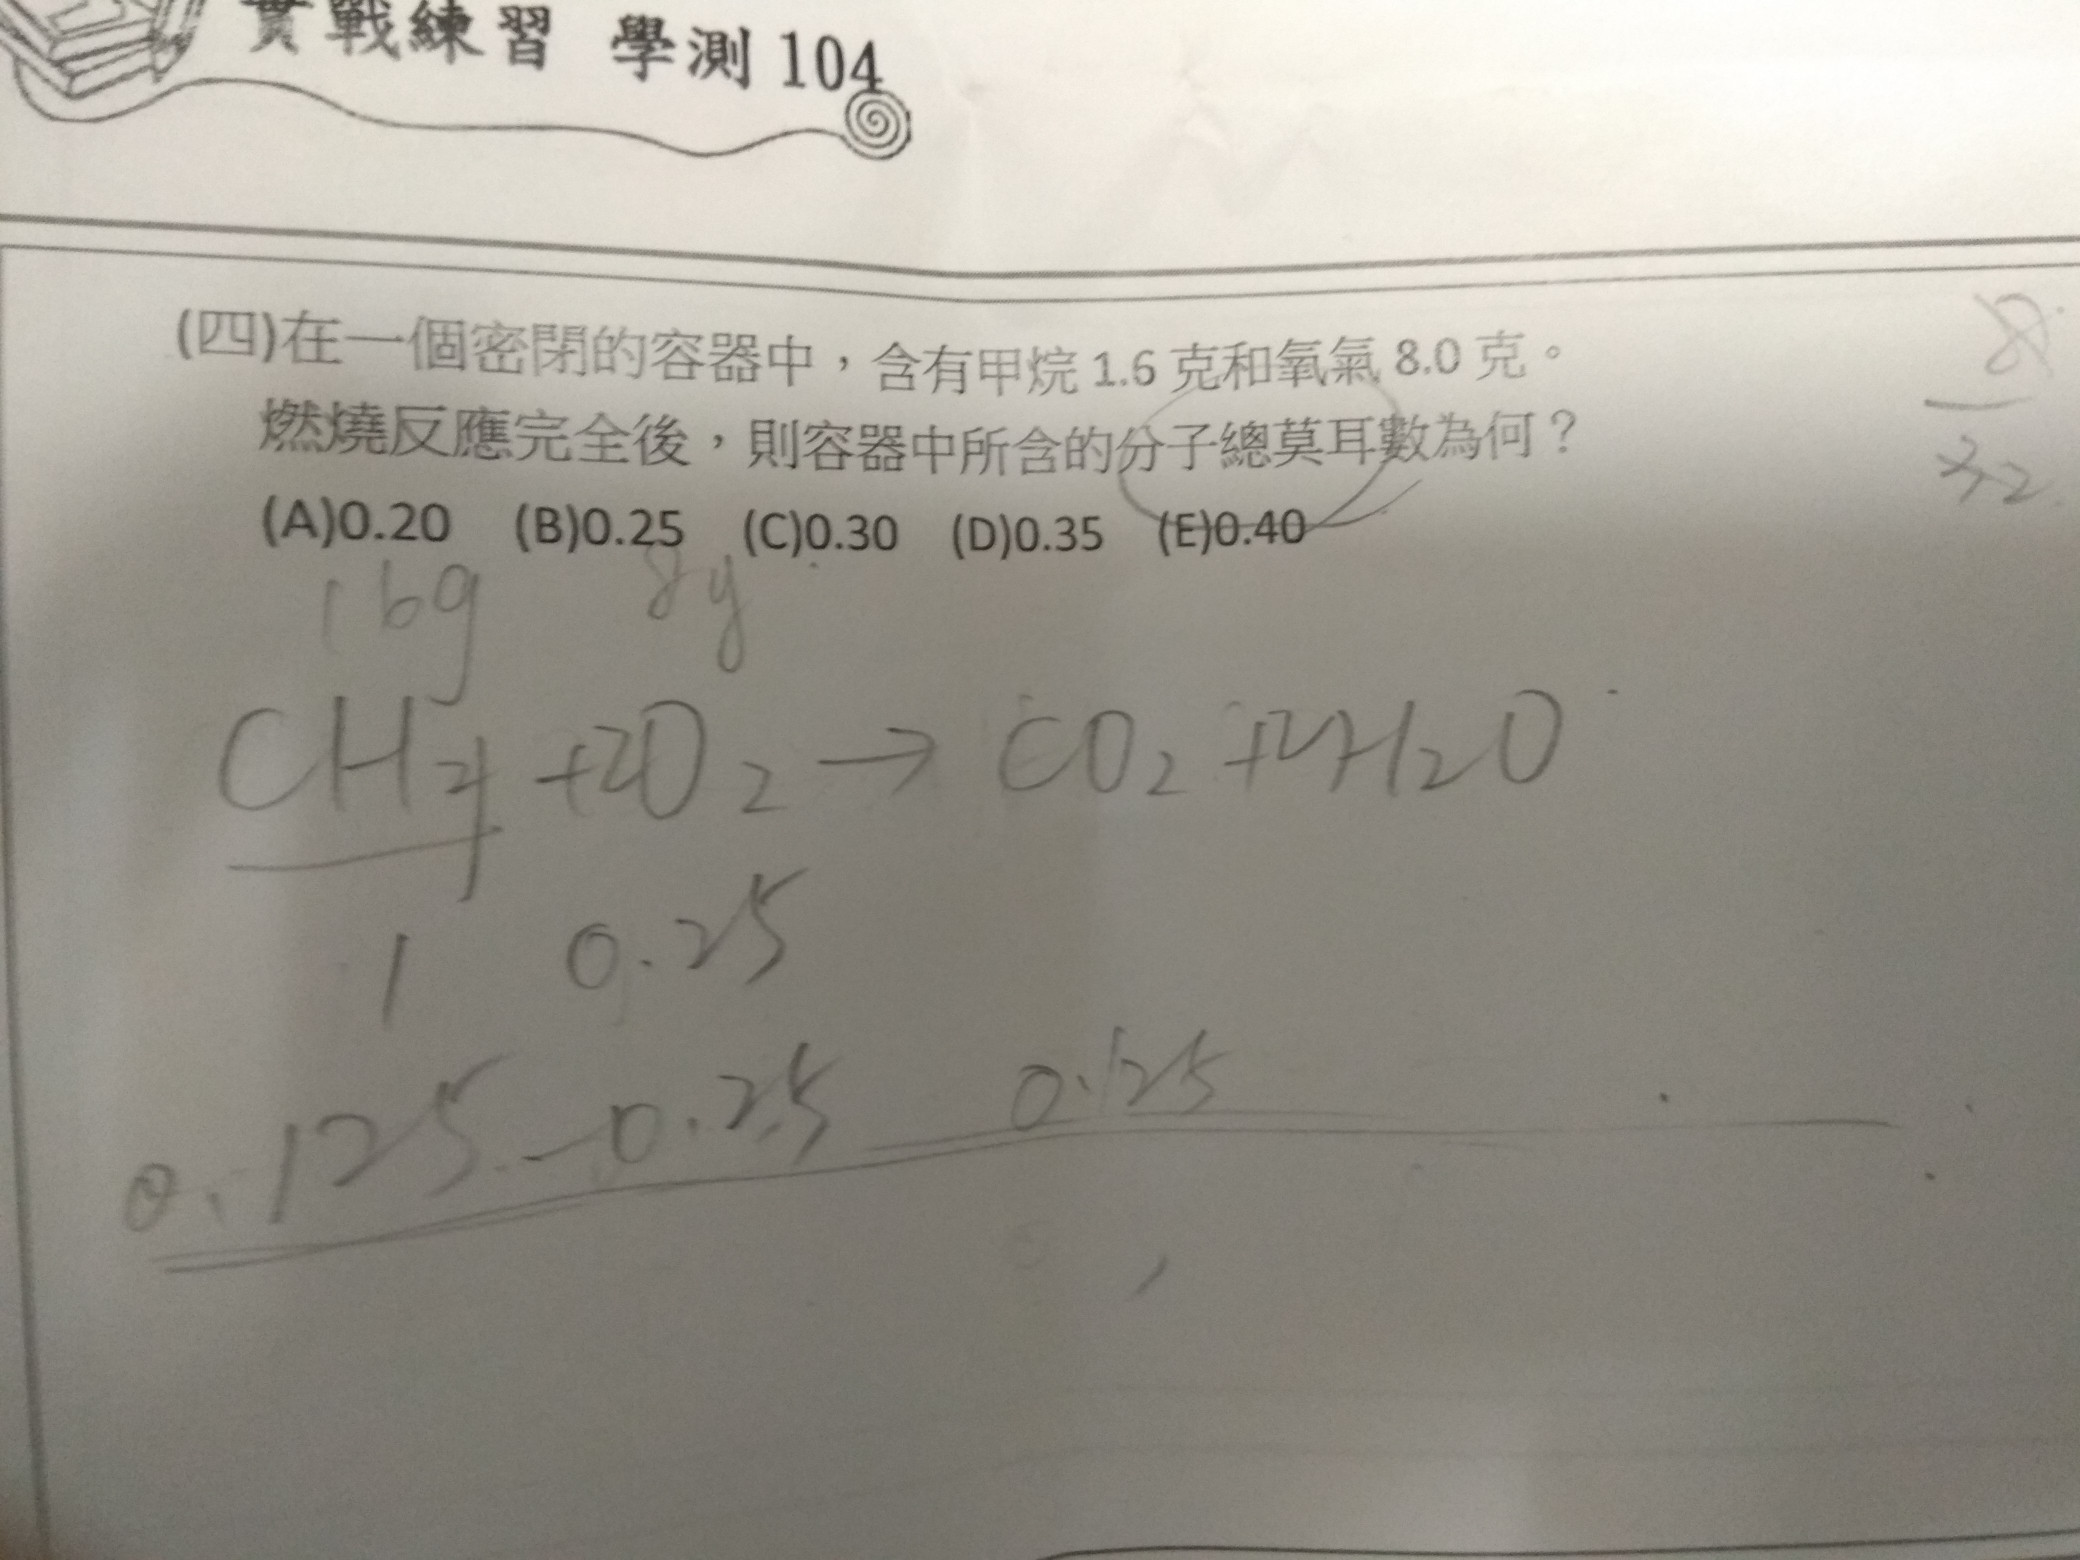 實戰練習 學測104
(四)在一個密閉的容器中，含有甲烷1.6克和氧氣8.0克。
燃燒反應完全後，則容器中所含的分子總莫耳數為何？
(A)0.20 (B)0.25 (C)0.30 (D)0.35 (E)0.40
8
32
16g 8g
CH4 +2O2 → CO2 +2H2O
1 0.25
0.125 -0.25 0.125